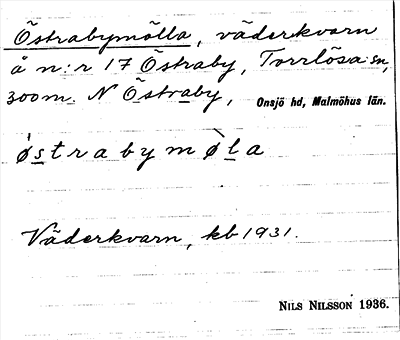 Östrabymölla, väderkvarn
å n:r 17 Östraby, Torrlösa sn,
300 m. N Östraby, Onsjö hd, Malmöhus län.
ǿstrabymø̀la
Väderkvarn, kb 1931.
NILS NILSSON 1936.